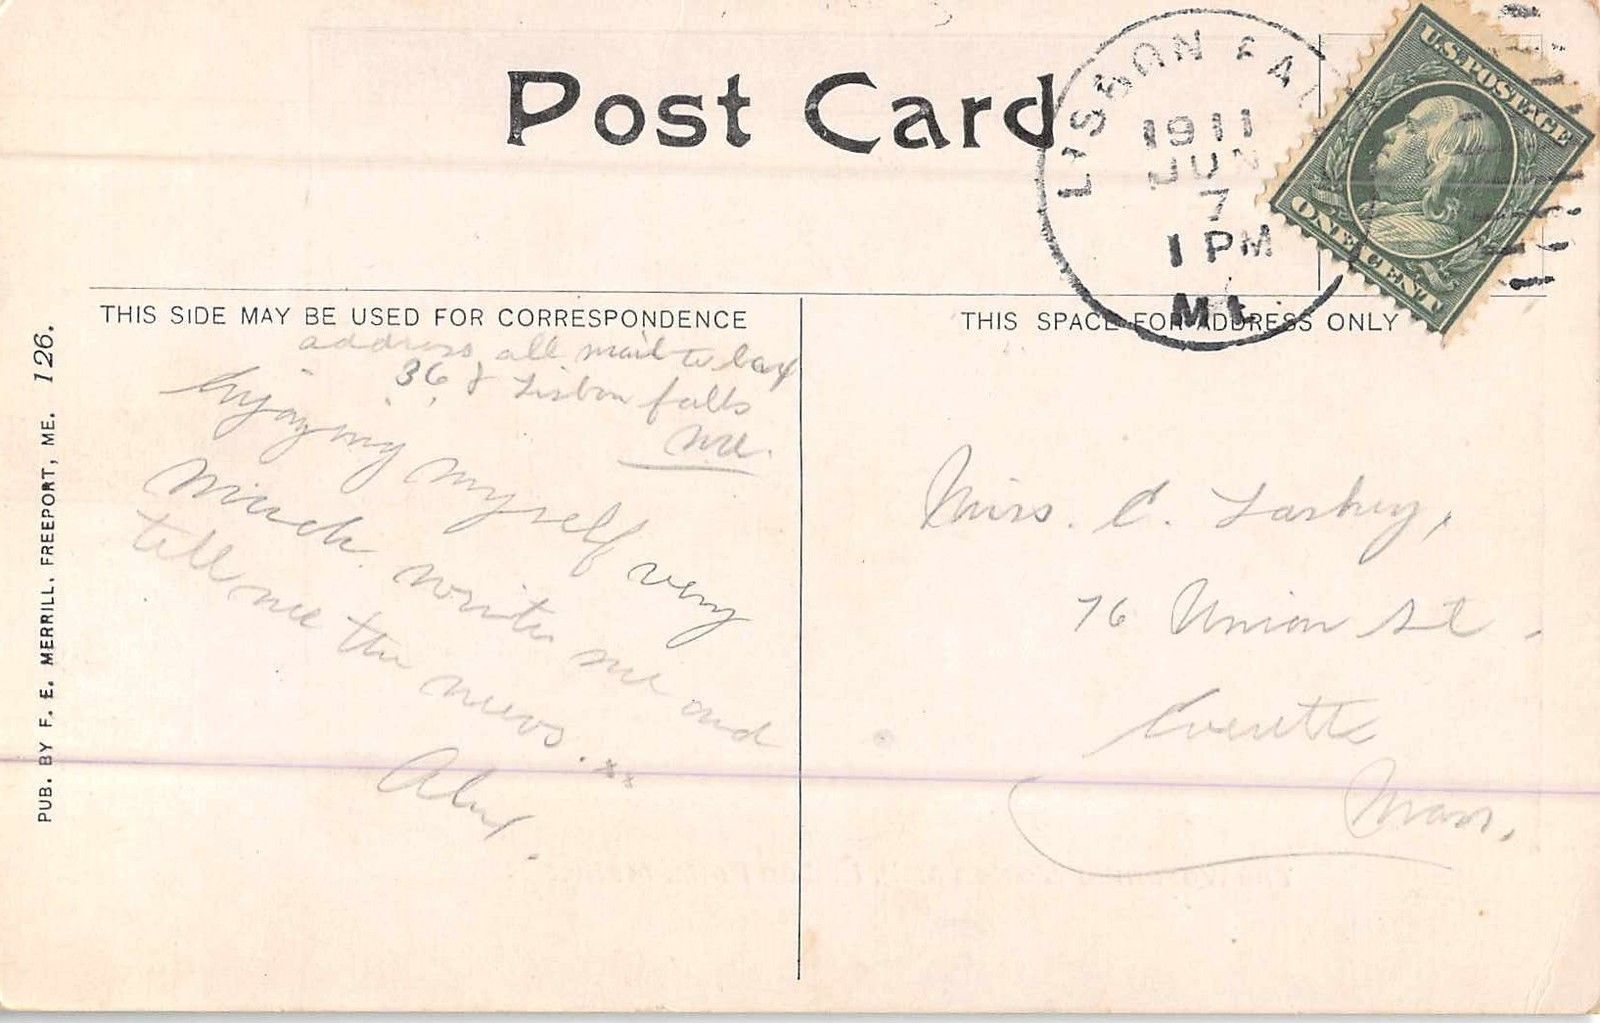 Post Card
LISBON FAL
1911
JUN
7
1 PM
ME
U.S. POSTAGE
ONE CENT
THIS SIDE MAY BE USED FOR CORRESPONDENCE
THIS SPACE FOR ADDRESS ONLY
address all mail to box
36 Lisbon falls
Me.
Enjoying myself very
much write me and
tell me the news. xxx
Miss. C.
76 Union St.
Everett
Mass.
PUB. BY F. E. MERRILL, FREEPORT, ME. 126.